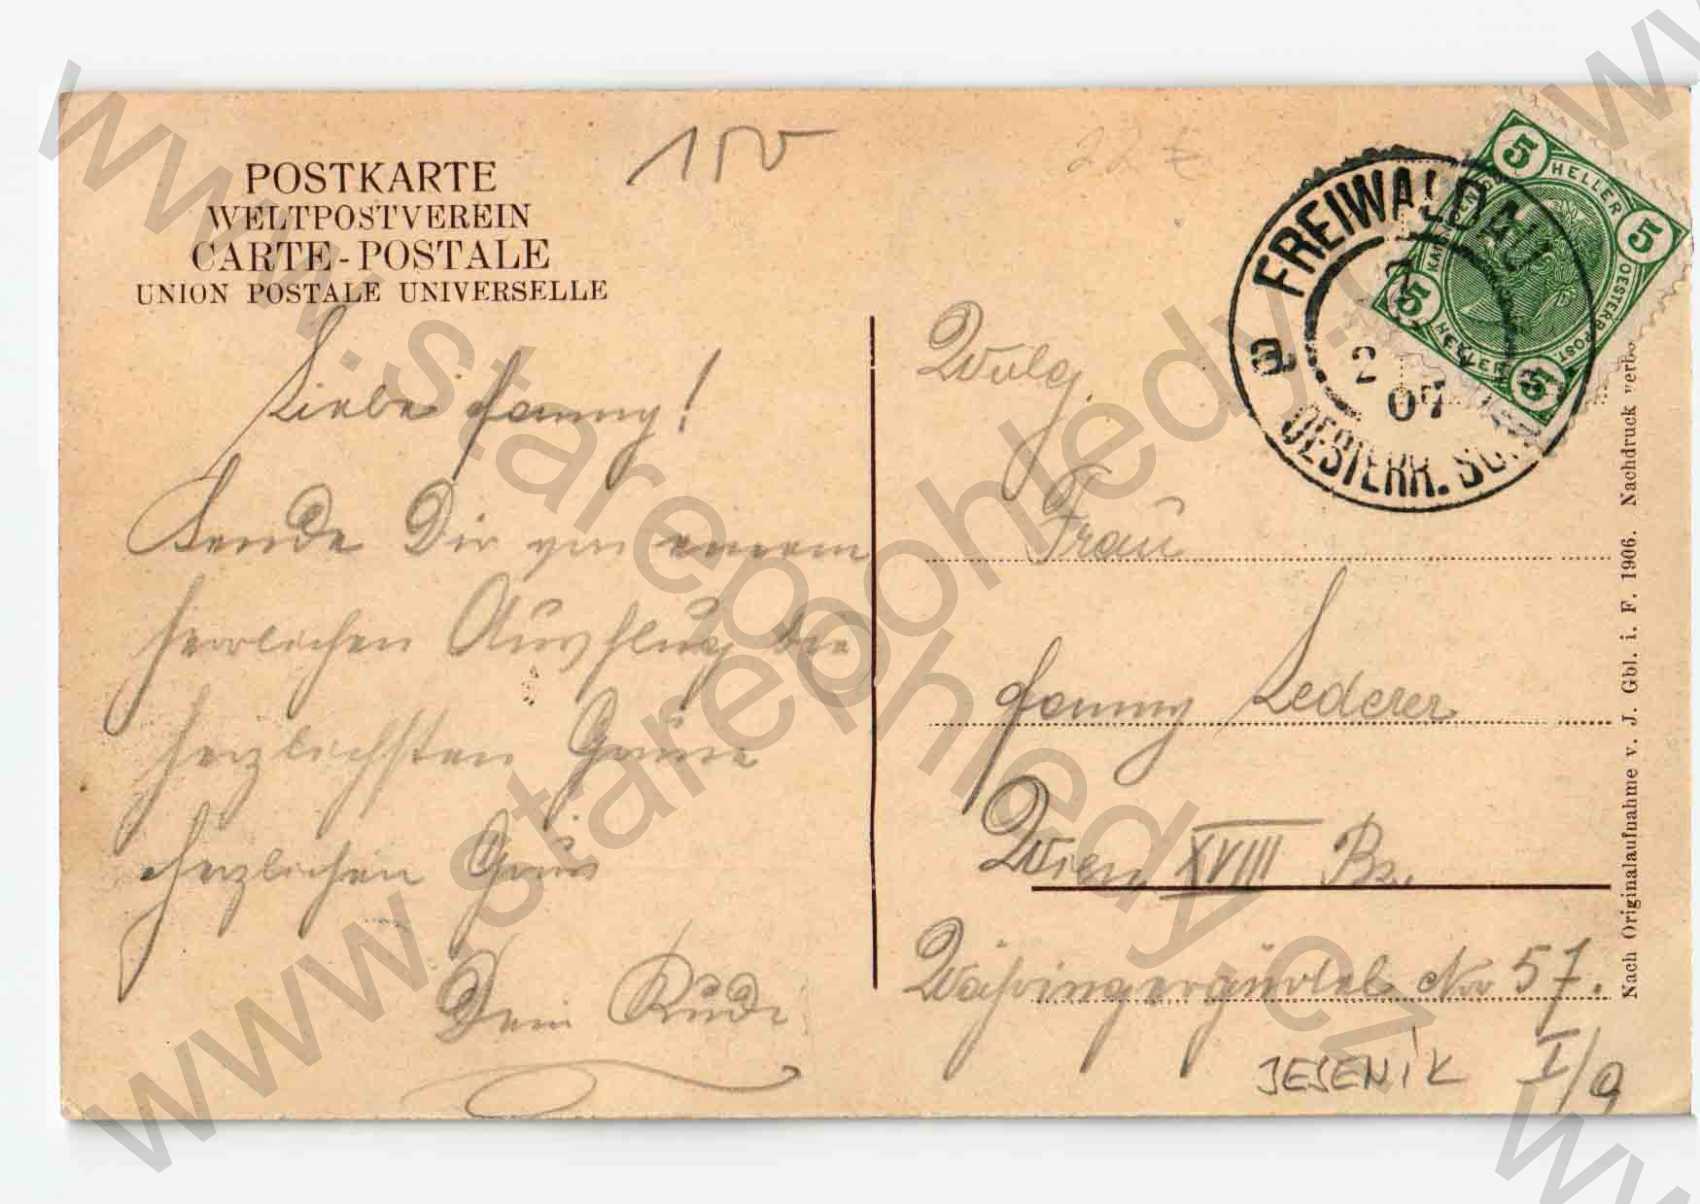 POSTKARTE
WELTPOSTVEREIN
CARTE-POSTALE
UNION POSTALE UNIVERSELLE
150
22 €
Liebe Fanny!
Sende Dir von einem
herrlichen Ausflug die
herzlichsten Grüsse
Herzlichen Gruss
Dein Rudi
FREIWALDAU
2
07
OESTERR.
a
5 HELLER 5
5 HELLER 5
OESTERR POST
Wolg.
Frau
Fanny Lederer
Wien XVIII Bz.
Währingergürtel No 57.
I/9
JESENÍK
Nach Originalaufnahme v. J. Gbl. i. F. 1906. Nachdruck verb.
www.starepohledy.cz
www.starepohledy.cz